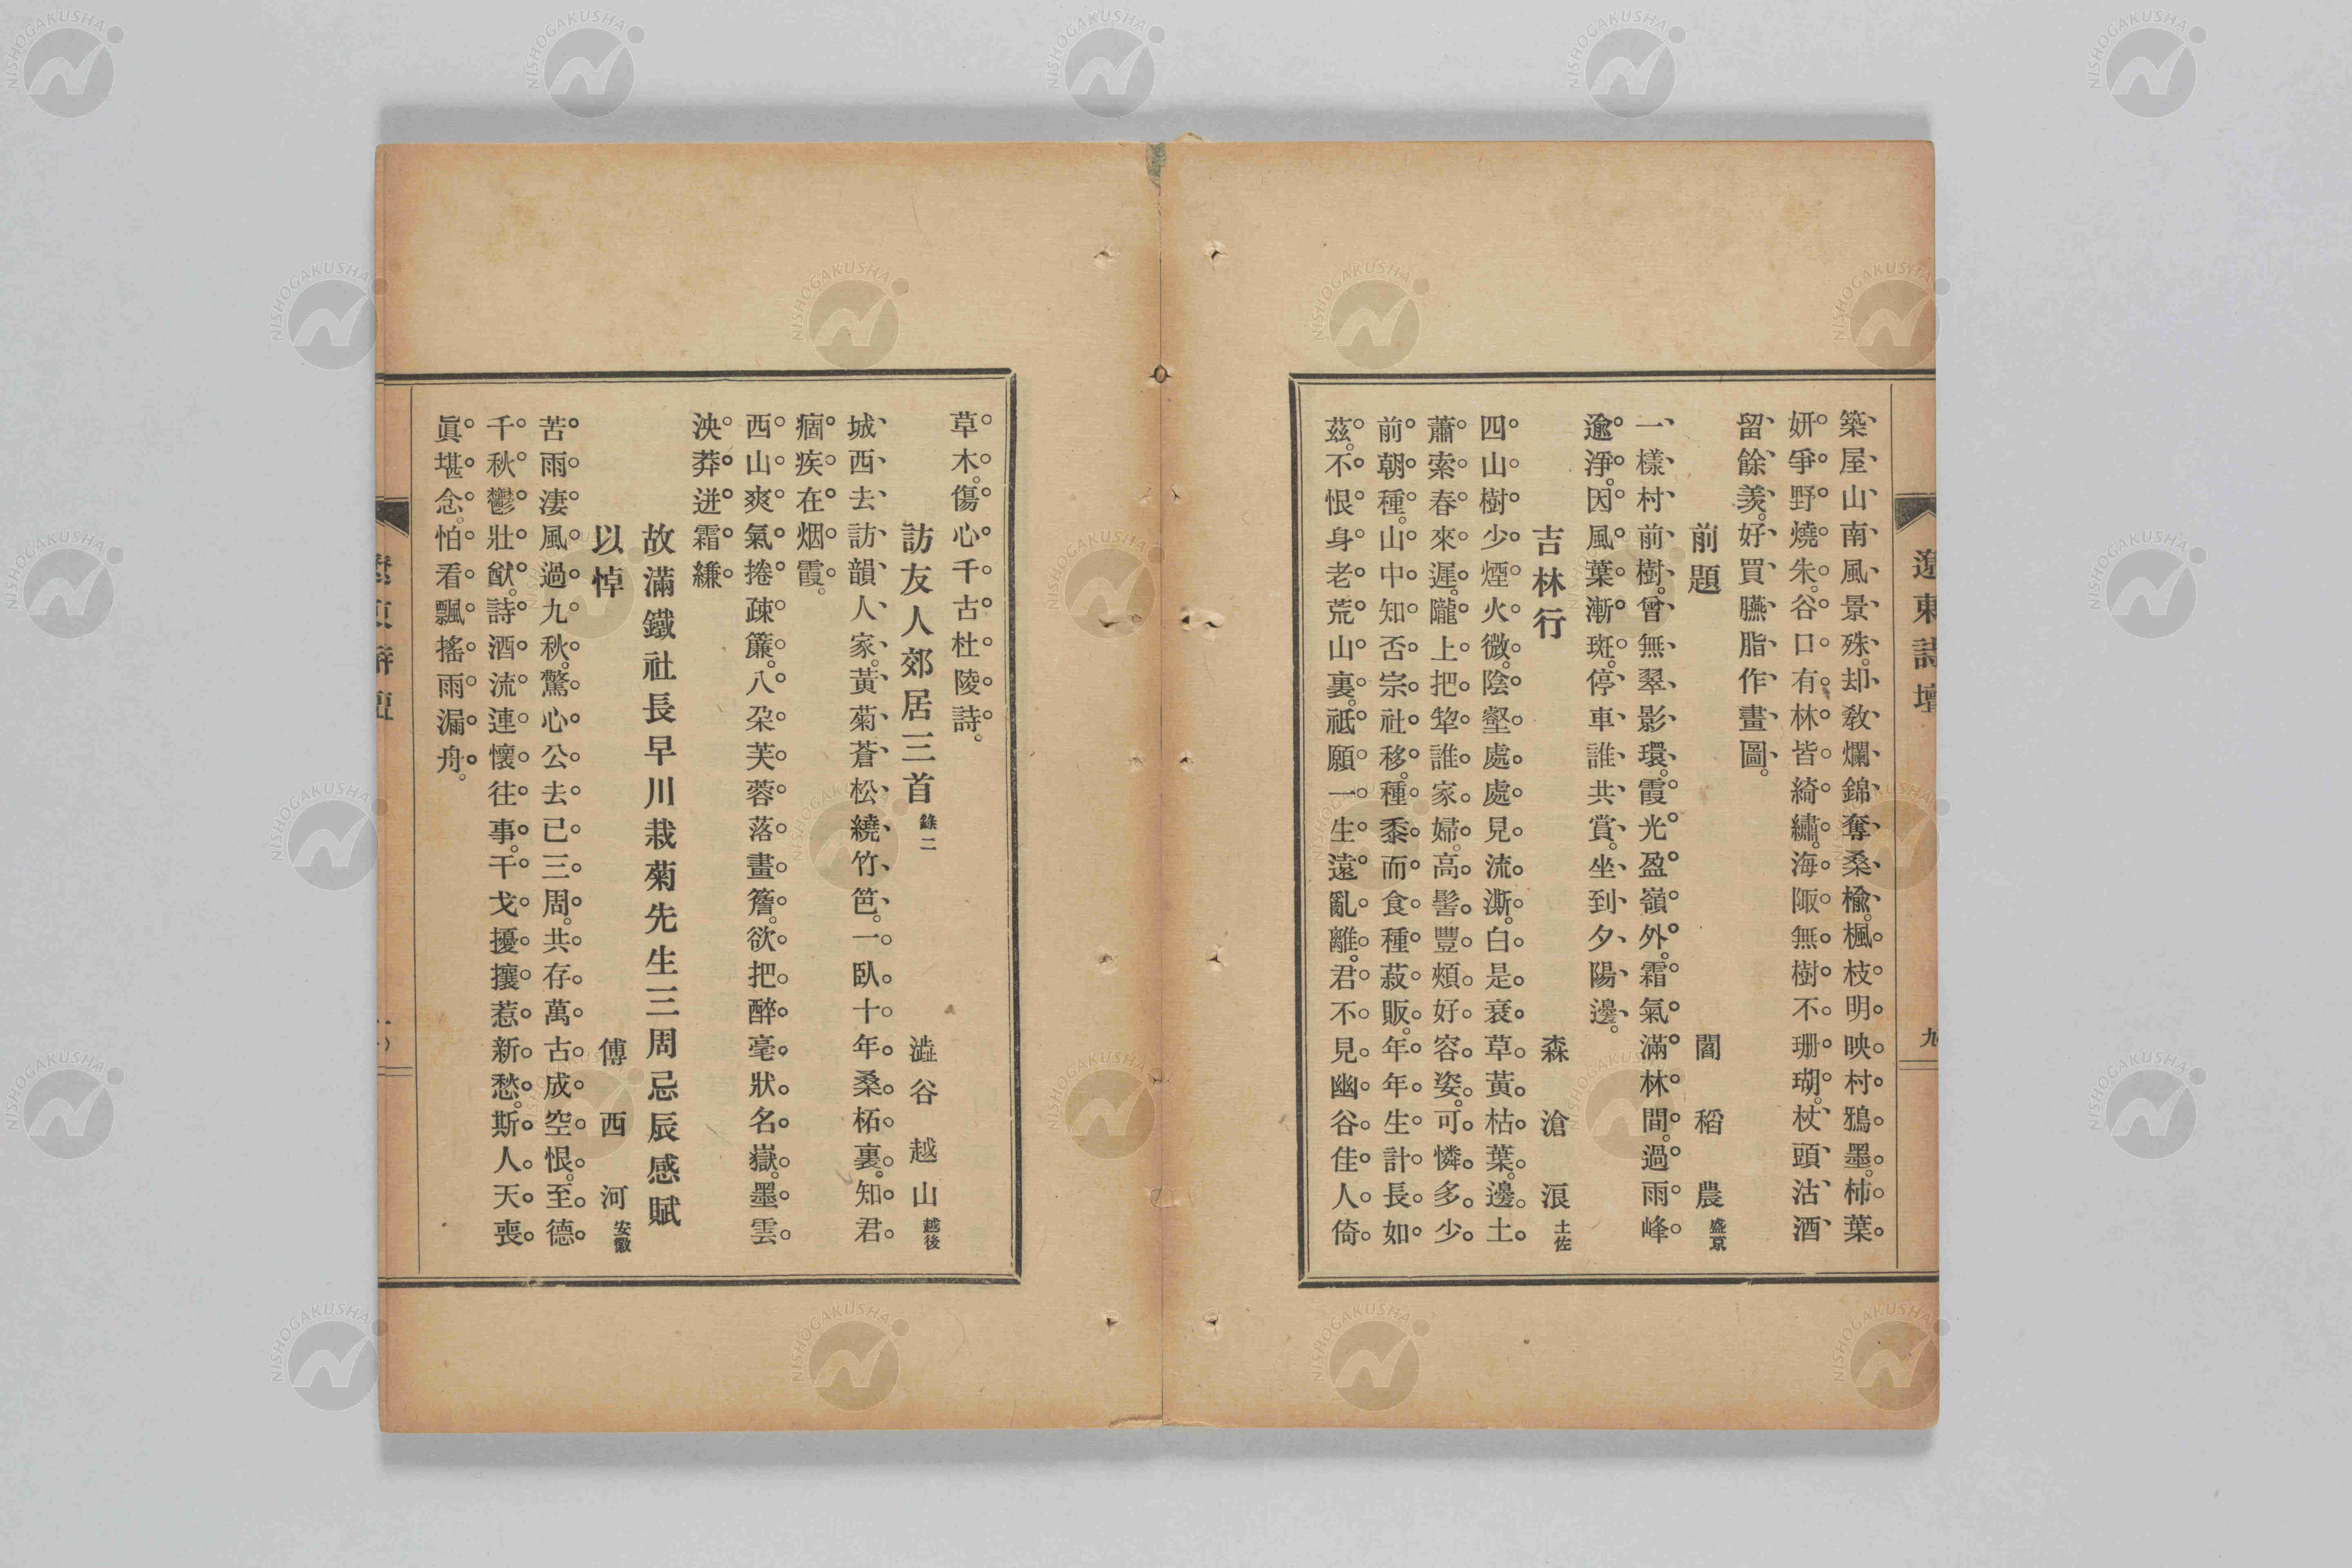 遼東詩壇
九
築屋山南風景殊。却敎爛錦奪桑楡。楓枝明映村鴉墨。柿葉
妍爭野燒朱。谷口有林皆綺繡。海陬無樹不珊瑚。杖頭沽酒
留餘羨。好買臙脂作畫圖。
前題　閻稻農 盛京
一樣村前樹。曾無翠影環。霞光盈嶺外。霜氣滿林間。過雨峰
逾淨。因風葉漸斑。停車誰共賞。坐到夕陽邊。
吉林行　森滄浪 土佐
四山樹少煙火微。陰壑處處見流澌。白是衰草黃枯葉。邊土
蕭索春來遲。隴上把犂誰家婦。高髻豐頰好容姿。可憐多少
前朝種。山中知否宗社移。種黍而食種菽販。年年生計長如
茲。不恨身老荒山裏。祗願一生遠亂離。君不見幽谷佳人倚
草木。傷心千古杜陵詩。
訪友人郊居三首 錄二　澁谷越山 越後
城西去訪韻人家。黃菊蒼松繞竹笆。一臥十年桑柘裏。知君
痼疾在烟霞。
西山爽氣捲疎簾。八朶芙蓉落畫簷。欲把醉毫狀名嶽。墨雲
泱莽迸霜縑
故滿鐵社長早川栽菊先生三周忌辰感賦
以悼　傅西河 安徽
苦雨淒風過九秋。驚心公去已三周。共存萬古成空恨。至德
千秋鬱壯猷。詩酒流連懷往事。干戈擾攘惹新愁。斯人天喪
眞堪念。怕看飄搖雨漏舟。
NISHOGAKUSHA